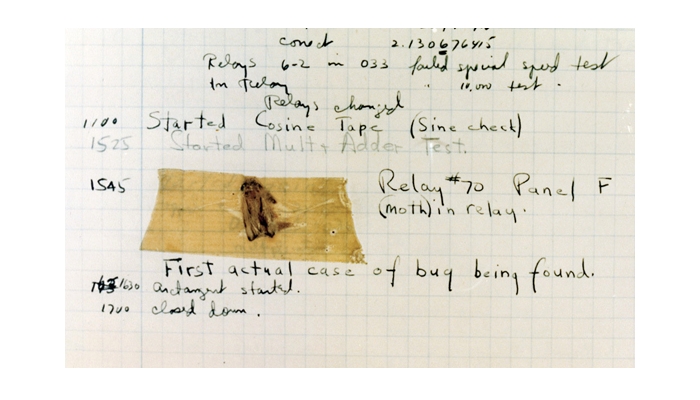 correct 2.130676415
Relays 6-2 in 033 failed special speed test
In Relay " 10.000 test .
Relays changed
1100 Started Cosine Tape (Sine check)
1525 Started Mult + Adder Test.
1545 Relay #70 Panel F
(moth) in relay.
First actual case of bug being found.
1630 antangent started.
1700 closed down .